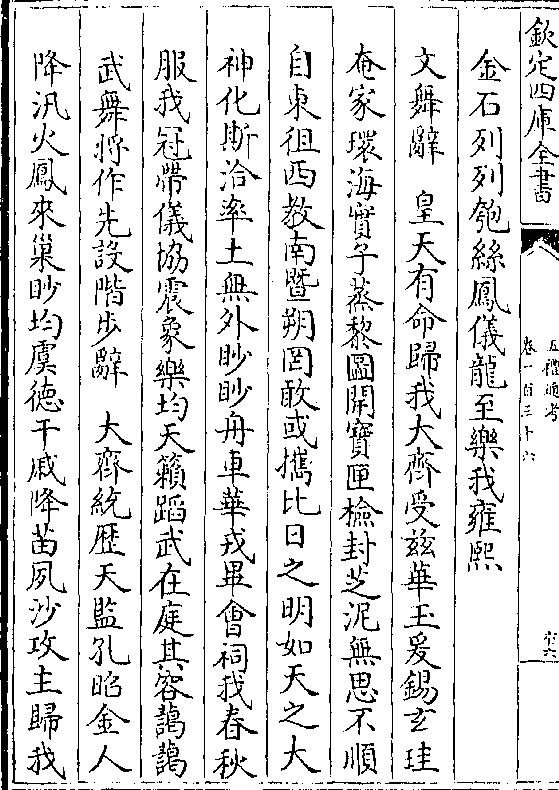 欽定四庫全書
五禮通考
卷一百三十六
金石列列匏絲鳳儀龍至樂我雍熙
文舞辭　皇天有命歸我大齊受茲華玉爰錫玄珪
奄家環海實子蒸黎圖開寶匣檢封芝泥無思不順
自東徂西教南暨朔罔敢或攜比日之明如天之大
神化斯洽率土無外眇眇舟車華戎畢會祠我春秋
服我冠帶儀協震象樂均天籟蹈武在庭其容藹藹
武舞將作先設階步辭　大齊統歷天監孔昭金人
降汎火鳳來巢眇均虞德干戚降苗夙沙攻主歸我